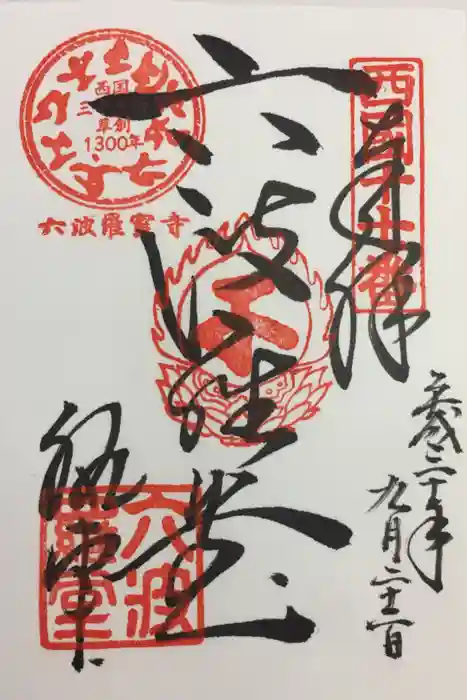 西国十七番
奉拝
平成三十年
九月二十一日
西国
三十三所
草創
1300年
六波羅蜜寺
六波羅堂
六波
羅堂